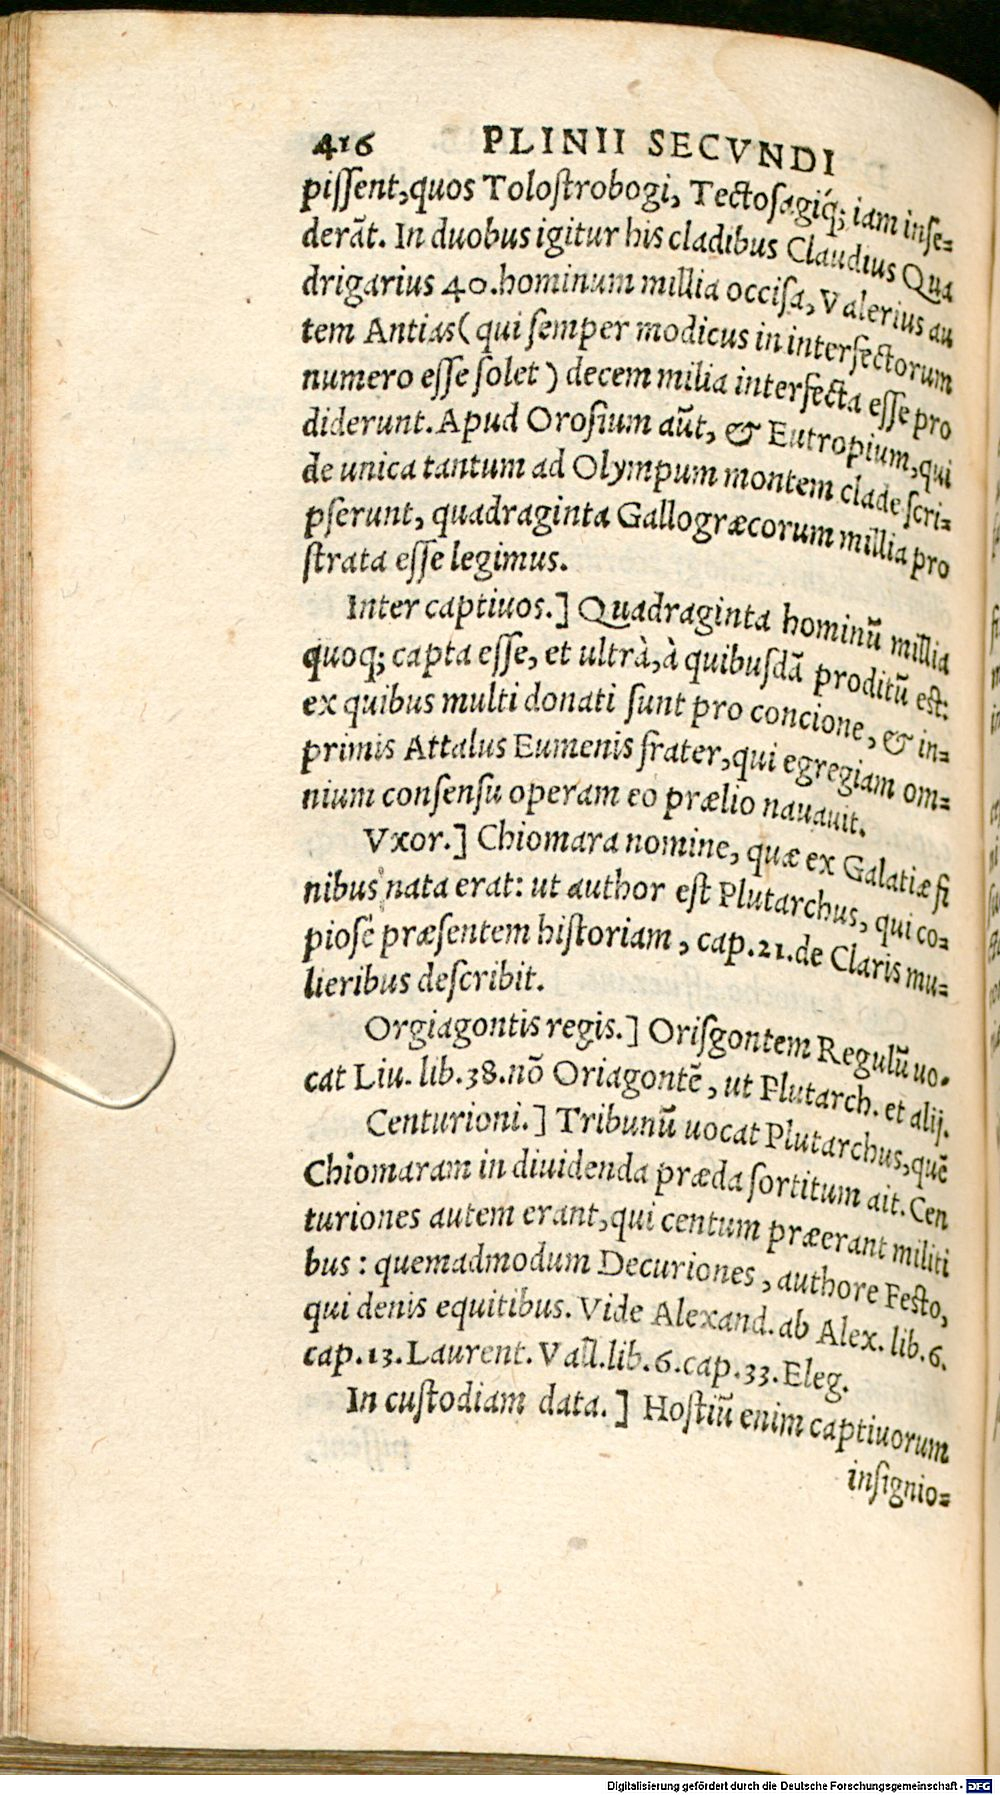 416 PLINII SECVNDI
pißent, quos Tolostrobogi, Tectosagíq; iam inse-
derãt. In duobus igitur his cladibus Claudius Qua
drigarius 40. hominum millia occisa, Valerius au
tem Antias (qui semper modicus in interfectorum
numero esse solet) decem milia interfecta esse pro
diderunt. Apud Orosium aũt, & Eutropium, qui
de unica tantum ad Olympum montem clade scri-
pserunt, quadraginta Gallogræcorum millia pro
strata esse legimus.
Inter captiuos.] Quadraginta hominũ millia
quoq; capta esse, et ultrà, à quibusdã proditũ est:
ex quibus multi donati sunt pro concione, & in-
primis Attalus Eumenis frater, qui egregiam om-
nium consensu operam eo prælio nauauit.
Vxor.] Chiomara nomine, quæ ex Galatiæ fi
nibus nata erat: ut author est Plutarchus, qui co-
piosè præsentem historiam, cap. 21. de Claris mu-
lieribus describit.
Orgiagontis regis.] Orisgontem Regulũ uo-
cat Liu. lib. 38. nõ Oriagontẽ, ut Plutarch. et alij.
Centurioni.] Tribunũ uocat Plutarchus, quẽ
Chiomaram in diuidenda præda sortitum ait. Cen
turiones autem erant, qui centum præerant militi
bus: quemadmodum Decuriones, authore Festo,
qui denis equitibus. Vide Alexand. ab Alex. lib. 6.
cap. 13. Laurent. Vall. lib. 6. cap. 33. Eleg.
In custodiam data.] Hostiũ enim captiuorum
insignio-
Digitalisierung gefördert durch die Deutsche Forschungsgemeinschaft - DFG